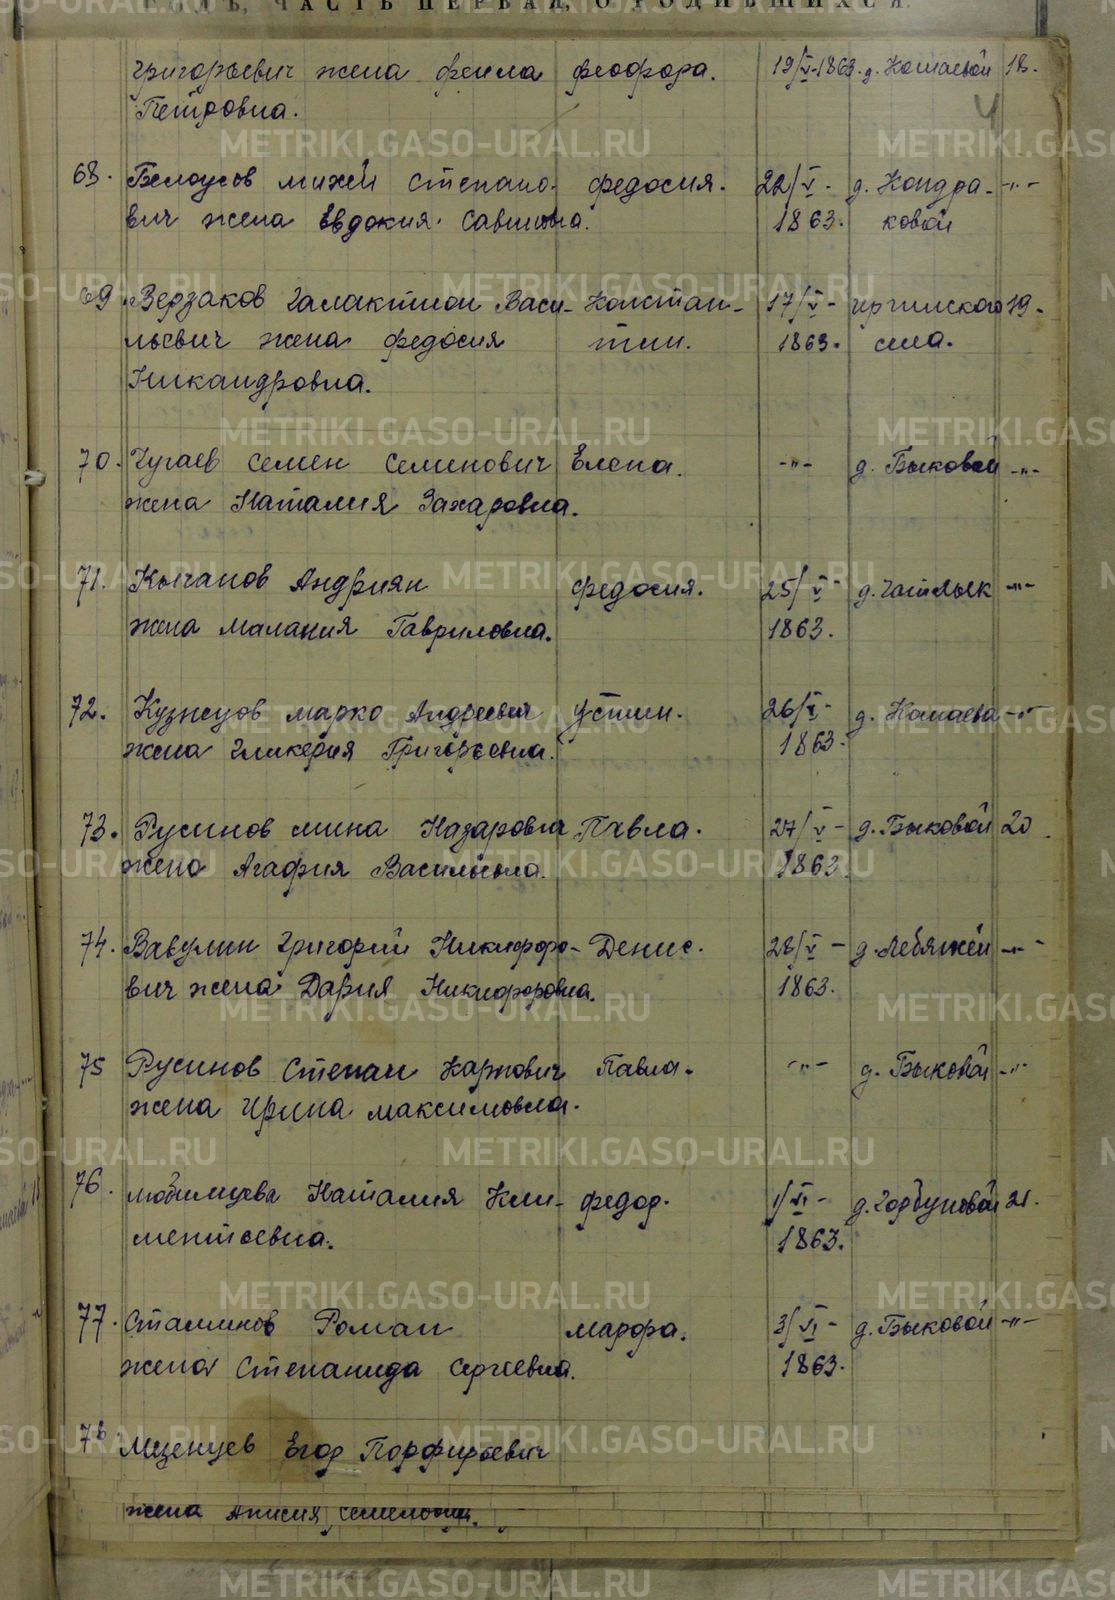 ЧАСТЬ ПЕРВАЯ, О РОДИВШИХСЯ.
Григорьевич жена фекла феофора. 19/V-1863. д. Комаевой 18.
Петровна.
68. Белоусов михей степано- федосия. 22/V- д. Кондра- -"-
вич жена Евдокия Савишна. 1863. ковой
69. Ведзаков Галактион Васи- Констан- 17/V- иргинского 19.
льевич жена федосия тин. 1863. села.
Никандровна.
70. Чугаев семен семенович Елена. -"- д. Быковой -"-
жена Наталия Захаровна.
71. Кычанов Андриян федосия. 25/V- д. Чатлык -"-
жена малания Гавриловна. 1863.
72. Кузнецов марко Андреевич устин. 26/V- д. Комаева -"-
жена гликерия Григорьевна. 1863.
73. Русинов мина Назарович Павла. 27/V- д. Быковой 20
жена Агафия Васильевна. 1863.
74. Вавулин Григорий Никифоро- Денис. 28/V- д. Лебяжей -"-
вич жена Дария Никифоровна. 1863.
75 Русинов Степан Карпович Павла. -"- д. Быковой -"-
жена ирина максимовна.
76. любимцева Наталия Кли- федор. 1/VI- д. Горбуновой 21.
ментьевна. 1863.
77. Сталинов Роман марфа. 3/VI- д. Быковой -"-
жена Степанида сергеевна. 1863.
78. Мезенцев Егор Порфирьевич
жена Анисия семеновна.
METRIKI.GASO-URAL.RU